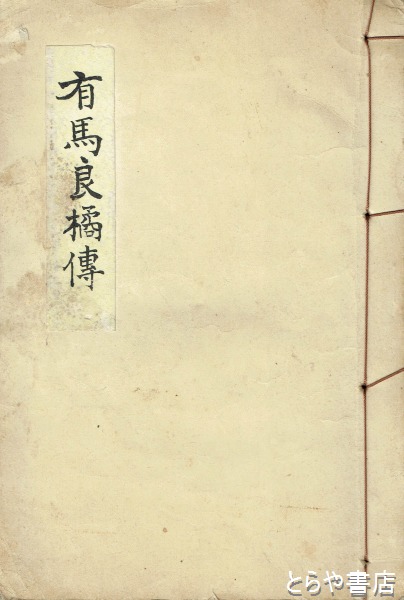 有馬良橘傳
とらや書店